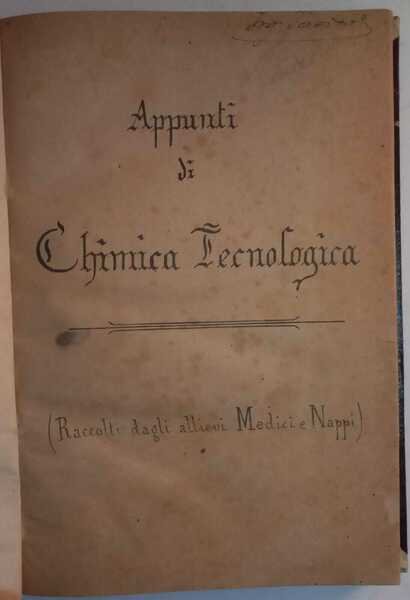 Appunti
di
Chimica Tecnologica
(Raccolti dagli allievi Medici e Nappi)